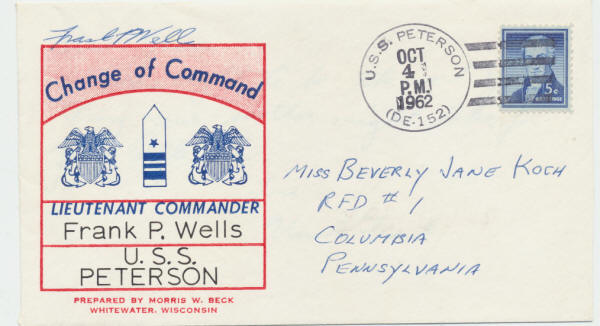 Frank P Wells
Change of Command
LIEUTENANT COMMANDER
Frank P. Wells
U.S.S.
PETERSON
PREPARED BY MORRIS W. BECK
WHITEWATER, WISCONSIN
U.S.S. PETERSON
OCT
4
P.M.
1962
(DE-152)
5c
MISS BEVERLY JANE KOCH
RFD #1
COLUMBIA
PENNSYLVANIA